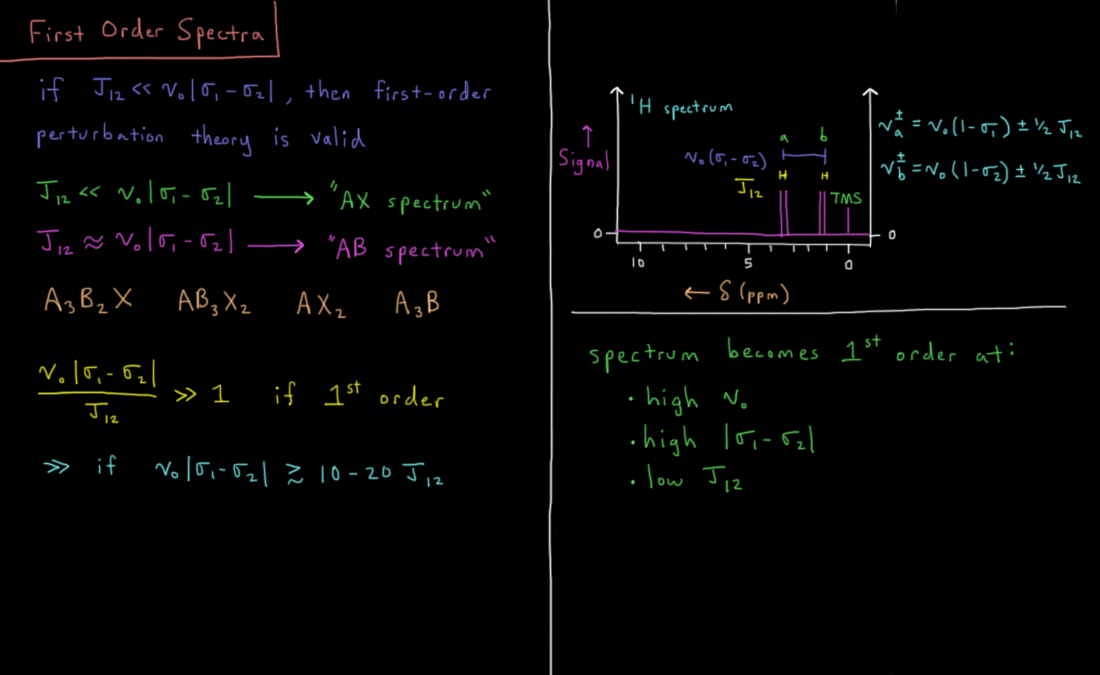 First Order Spectra
if J₁₂ << ν₀|σ₁ - σ₂|, then first-order
perturbation theory is valid
J₁₂ << ν₀|σ₁ - σ₂| ⟶ "AX spectrum"
J₁₂ ≈ ν₀|σ₁ - σ₂| ⟶ "AB spectrum"
A₃B₂X AB₃X₂ AX₂ A₃B
ν₀|σ₁ - σ₂| / J₁₂ >> 1 if 1st order
>> if ν₀|σ₁ - σ₂| ≳ 10 - 20 J₁₂
¹H spectrum
↑
Signal
a b
ν₀(σ₁ - σ₂)
H H
J₁₂
TMS
0 0
10 5 0
← δ (ppm)
νₐ± = ν₀(1 - σ₁) ± ½ J₁₂
ν_b± = ν₀(1 - σ₂) ± ½ J₁₂
spectrum becomes 1st order at:
• high ν₀
• high |σ₁ - σ₂|
• low J₁₂